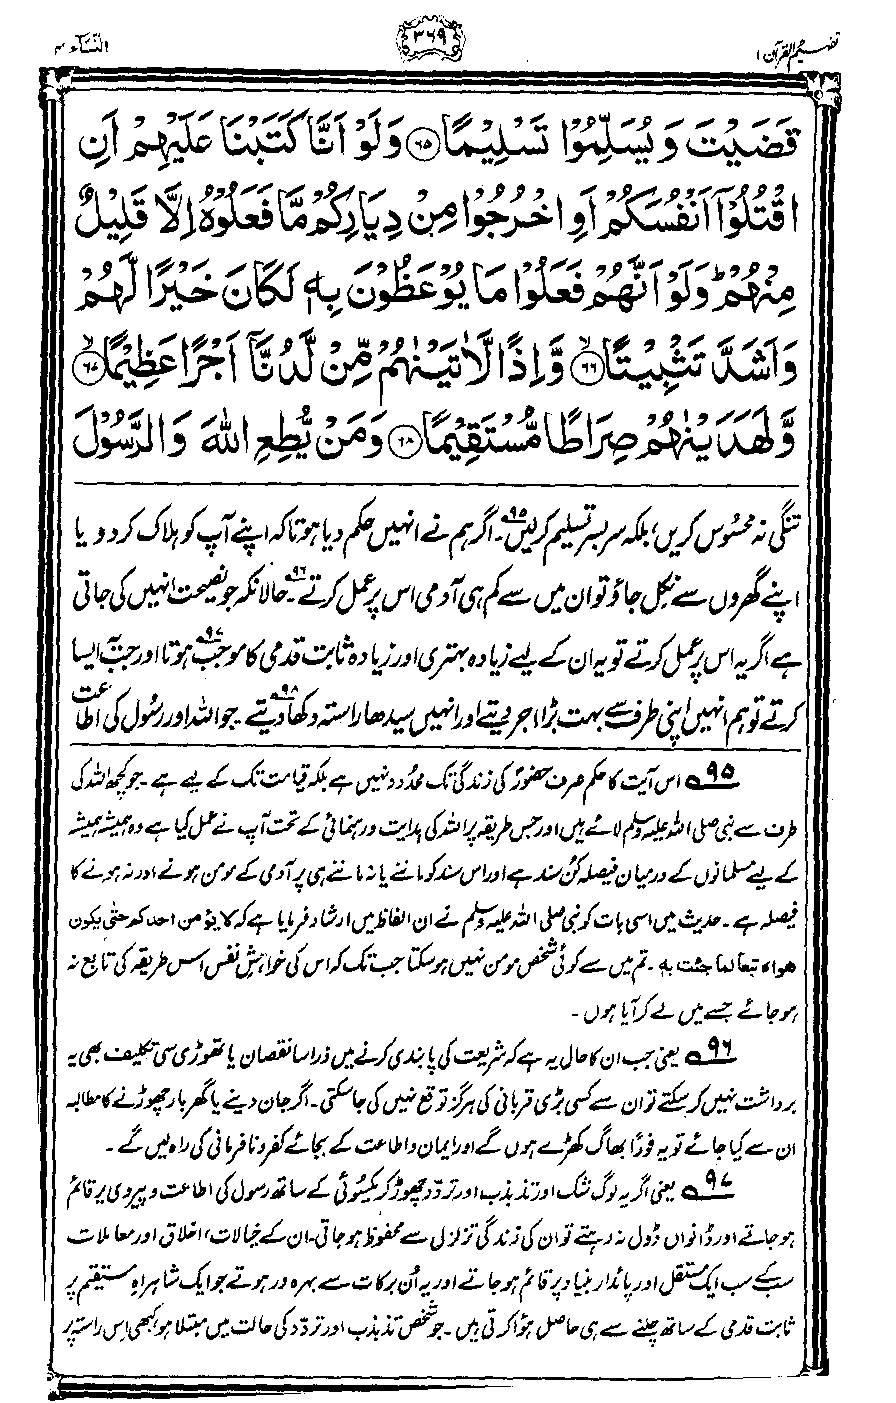 تفہیم القرآن ۱
۳۶۹
النسآء ۴
قَضَيْتَ وَيُسَلِّمُوْا تَسْلِيْمًا ۝۶۵ وَلَوْ اَنَّا كَتَبْنَا عَلَيْهِمْ اَنِ
اقْتُلُوْٓا اَنْفُسَكُمْ اَوِ اخْرُجُوْا مِنْ دِيَارِكُمْ مَّا فَعَلُوْهُ اِلَّا قَلِيْلٌ
مِّنْهُمْ ؕ وَلَوْ اَنَّهُمْ فَعَلُوْا مَا يُوْعَظُوْنَ بِهٖ لَكَانَ خَيْرًا لَّهُمْ
وَاَشَدَّ تَثْبِيْتًا ۝۶۶ۙ وَّاِذًا لَّاٰتَيْنٰهُمْ مِّنْ لَّدُنَّآ اَجْرًا عَظِيْمًا ۝۶۷ۙ
وَّلَهَدَيْنٰهُمْ صِرَاطًا مُّسْتَقِيْمًا ۝۶۸ وَمَنْ يُّطِعِ اللّٰهَ وَالرَّسُوْلَ
تنگی نہ محسُوس کریں، بلکہ سربسر تسلیم کرلیں۹۵۔ اگر ہم نے انہیں حکم دیا ہوتا کہ اپنے آپ کو ہلاک کر دو یا
اپنے گھروں سے نِکل جاؤ تو ان میں سے کم ہی آدمی اس پر عمل کرتے۹۶۔ حالانکہ جو نصیحت انہیں کی جاتی
ہے اگر یہ اس پر عمل کرتے تو یہ ان کے لیے زیادہ بہتری اور زیادہ ثابت قدمی کا موجب۹۷ ہوتا اور جب یہ ایسا
کرتے تو ہم انہیں اپنی طرف سے بہت بڑا اجر دیتے اور انہیں سیدھا راستہ دکھا دیتے۹۸۔ جو اللہ اور رسُول کی اطاعت
۹۵ اس آیت کا حکم صرف حضورؐ کی زندگی تک محدُود نہیں ہے بلکہ قیامت تک کے لیے ہے۔ جو کچھ اللہ کی
طرف سے نبی صلی اللہ علیہ وسلم لائے ہیں اور جس طریقہ پر اللہ کی ہدایت و رہنمائی کے تحت آپ نے عمل کیا ہے وہ ہمیشہ ہمیشہ
کے لیے مسلمانوں کے درمیان فیصلہ کُن سند ہے اور اس سند کو ماننے یا نہ ماننے ہی پر آدمی کے مومن ہونے اور نہ ہونے کا
فیصلہ ہے۔ حدیث میں اسی بات کو نبی صلی اللہ علیہ وسلم نے ان الفاظ میں ارشاد فرمایا ہے کہ لا یؤمن احدکم حتٰی یکون
ھواہ تبعاً لما جئت بہ۔ تم میں سے کوئی شخص مومن نہیں ہو سکتا جب تک کہ اس کی خواہشِ نفس اس طریقہ کی تابع نہ
ہو جائے جسے میں لے کر آیا ہوں۔
۹۶ یعنی جب ان کا حال یہ ہے کہ شریعت کی پابندی کرنے میں ذرا سا نقصان یا تھوڑی سی تکلیف بھی یہ
برداشت نہیں کر سکتے تو ان سے کسی بڑی قربانی کی ہرگز توقع نہیں کی جا سکتی۔ اگر جان دینے یا گھر بار چھوڑنے کا مطالبہ
ان سے کیا جائے تو یہ فوراً بھاگ کھڑے ہوں گے اور ایمان و اطاعت کے بجائے کفر و نافرمانی کی راہ لیں گے۔
۹۷ یعنی اگر یہ لوگ شک اور تذبذب اور تردّد چھوڑ کر یکسُوئی کے ساتھ رسول کی اطاعت و پیروی پر قائم
ہو جاتے اور ڈانواں ڈول نہ رہتے تو ان کی زندگی تزلزل سے محفوظ ہو جاتی۔ ان کے خیالات، اخلاق اور معاملات
سب کے سب ایک مستقل اور پائدار بنیاد پر قائم ہو جاتے اور یہ اُن برکات سے بہرہ ور ہوتے جو ایک شاہراہِ مستقیم پر
ثابت قدمی کے ساتھ چلنے سے ہی حاصل ہُوا کرتی ہیں۔ جو شخص تذبذب اور تردّد کی حالت میں مبتلا ہو، کبھی اِس راستہ پر